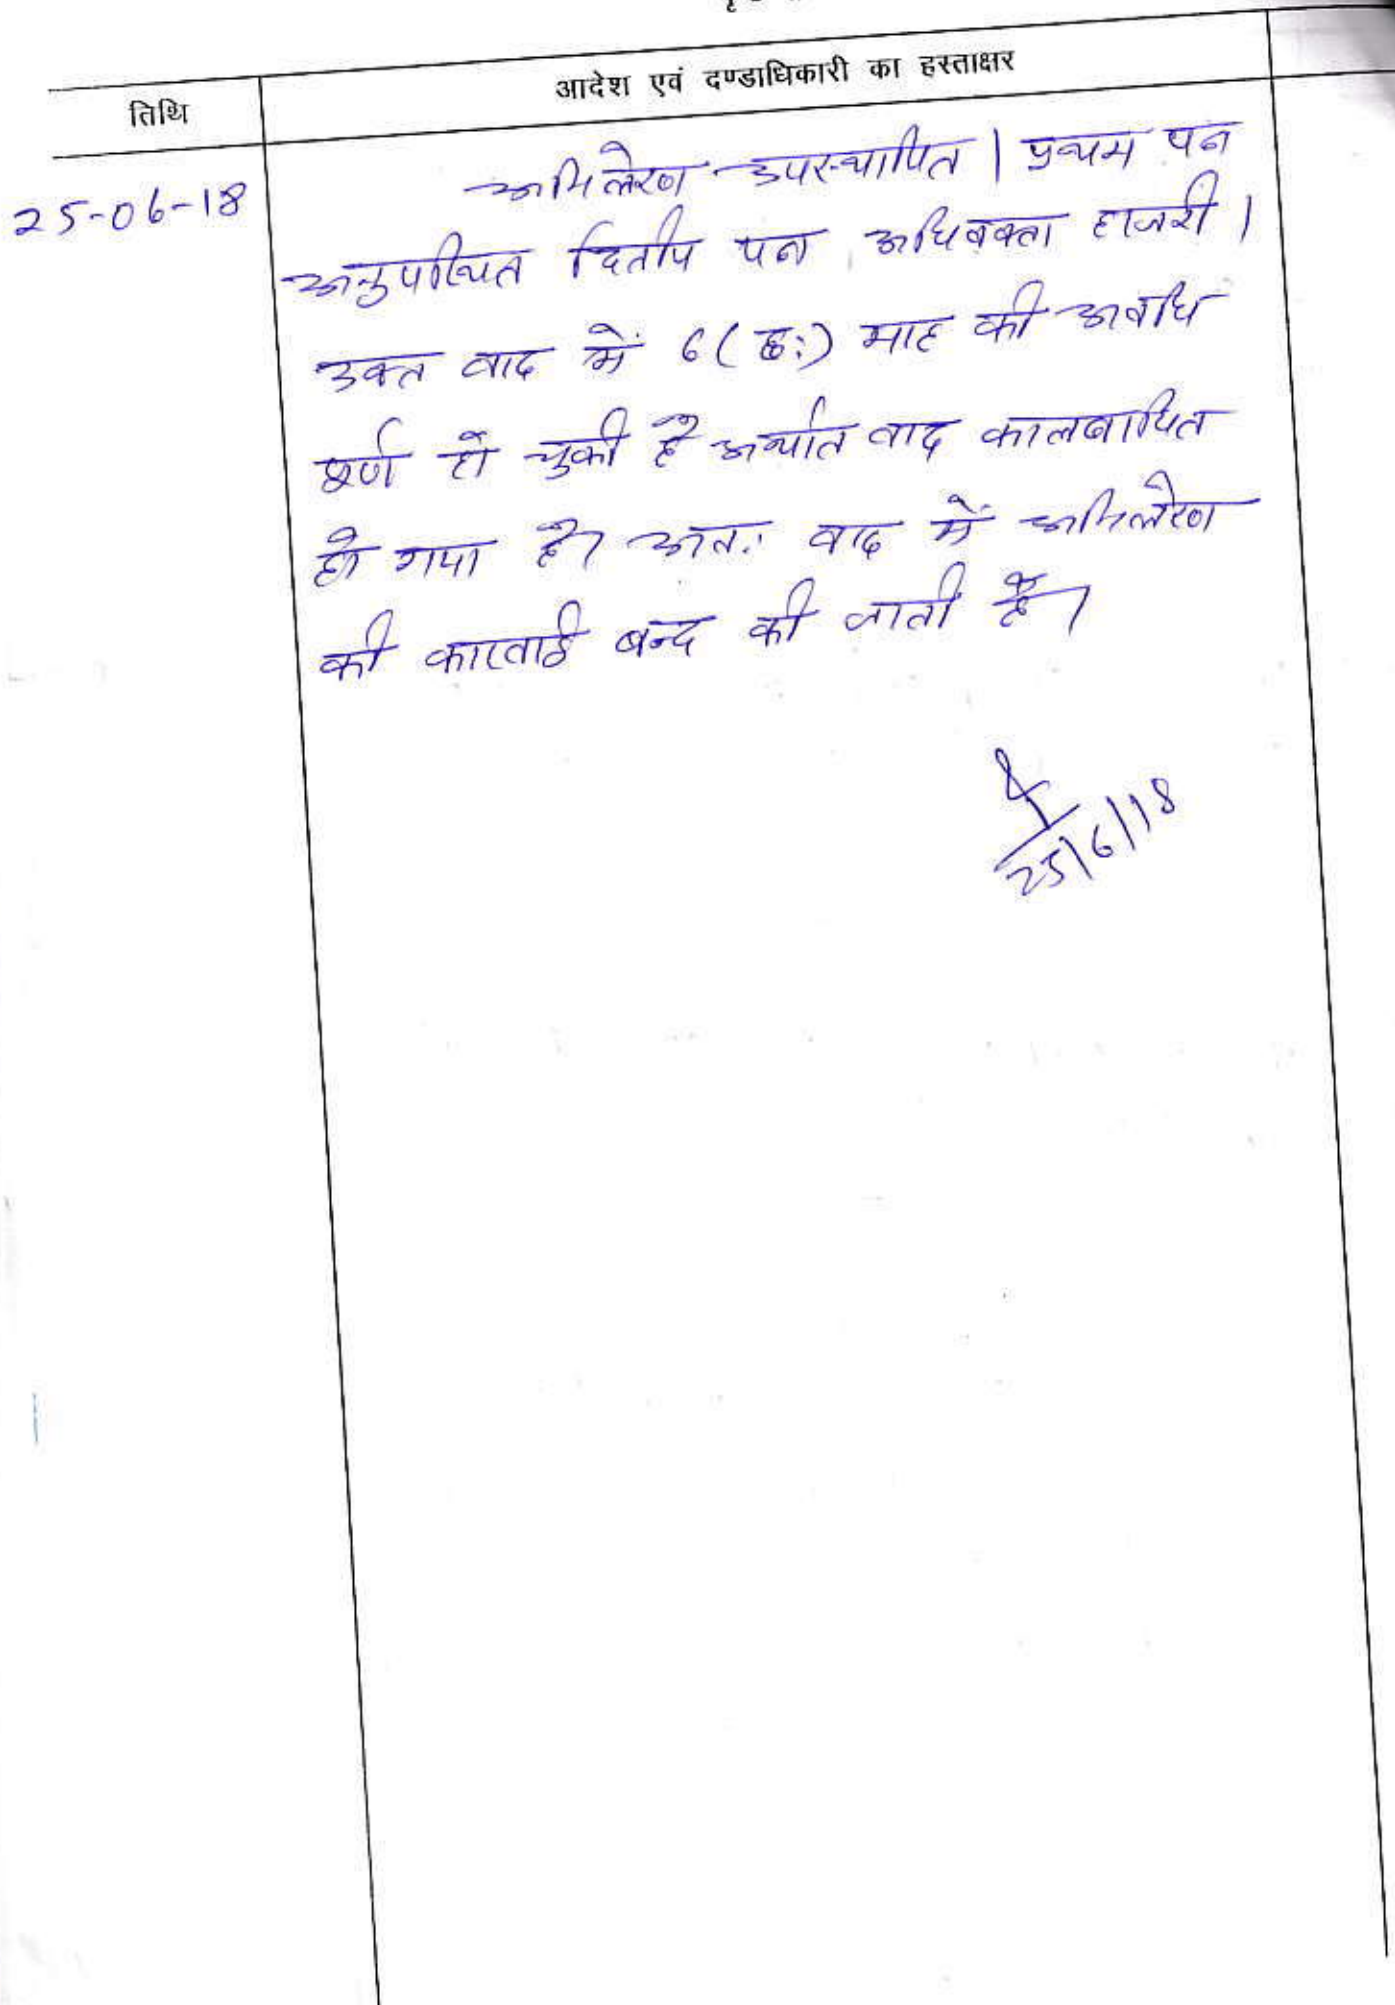 तिथि
आदेश एवं दण्डाधिकारी का हस्ताक्षर
25-06-18
अभिलेख उपस्थापित । प्रथम पक्ष
अनुपस्थित द्वितीय पक्ष अधिवक्ता हाजरी ।
उक्त वाद में 6 ( छः ) माह की अवधि
पूर्ण हो चुकी है अर्थात वाद कालबाधित
हो गया है। अतः वाद में अभिलेख
की कारवाई बन्द की जाती है।
25/6/18